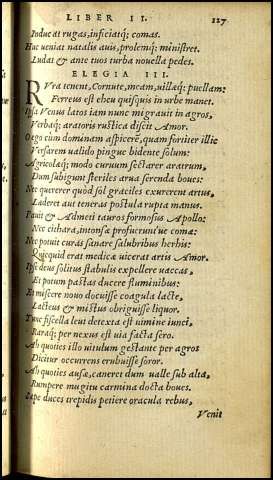 LIBER II. 127
Induc at rugas, inficiatq; comas.
Huc ueniat natalis auis, prolemq; ministret.
Ludat & ante tuos turba nouella pedes.
ELEGIA III.
RVra tenent, Cornute, meam, uillaeq; puellam:
Ferreus est eheu quisquis in urbe manet.
Ipsa Venus latos iam nunc migrauit in agros,
Verbaq; aratoris rustica discit Amor.
O ego cum dominam aspicerē, quam fortiter illic
Versarem ualido pingue bidente solum:
Agricolaeq; modo curuum sectarer aratrum,
Dum subigunt steriles arua serenda boues:
Nec quererer quòd sol graciles exureret artus,
Laederet aut teneras postula rupta manus.
Pauit & Admeti tauros formosus Apollo:
Nec cithara, intonsae profuerunt'ue comae:
Nec potuit curas sanare salubribus herbis:
Quicquid erat medicae uicerat artis Amor.
Ipse deus solitus stabulis expellere uaccas,
Et potum pastas ducere fluminibus:
Et miscere nouo docuisse coagula lacte,
Lacteus & mistus obriguisse liquor.
Tunc fiscella leui detexta est uimine iunci,
Raraq; per nexus est uia facta sero.
Ah quoties illo uitulum gestante per agros
Dicitur occurrens erubuisse soror.
Ah quoties ausae, caneret dum ualle sub alta,
Rumpere mugitu carmina docta boues.
Saepe duces trepidis petiere oracula rebus,
Venit